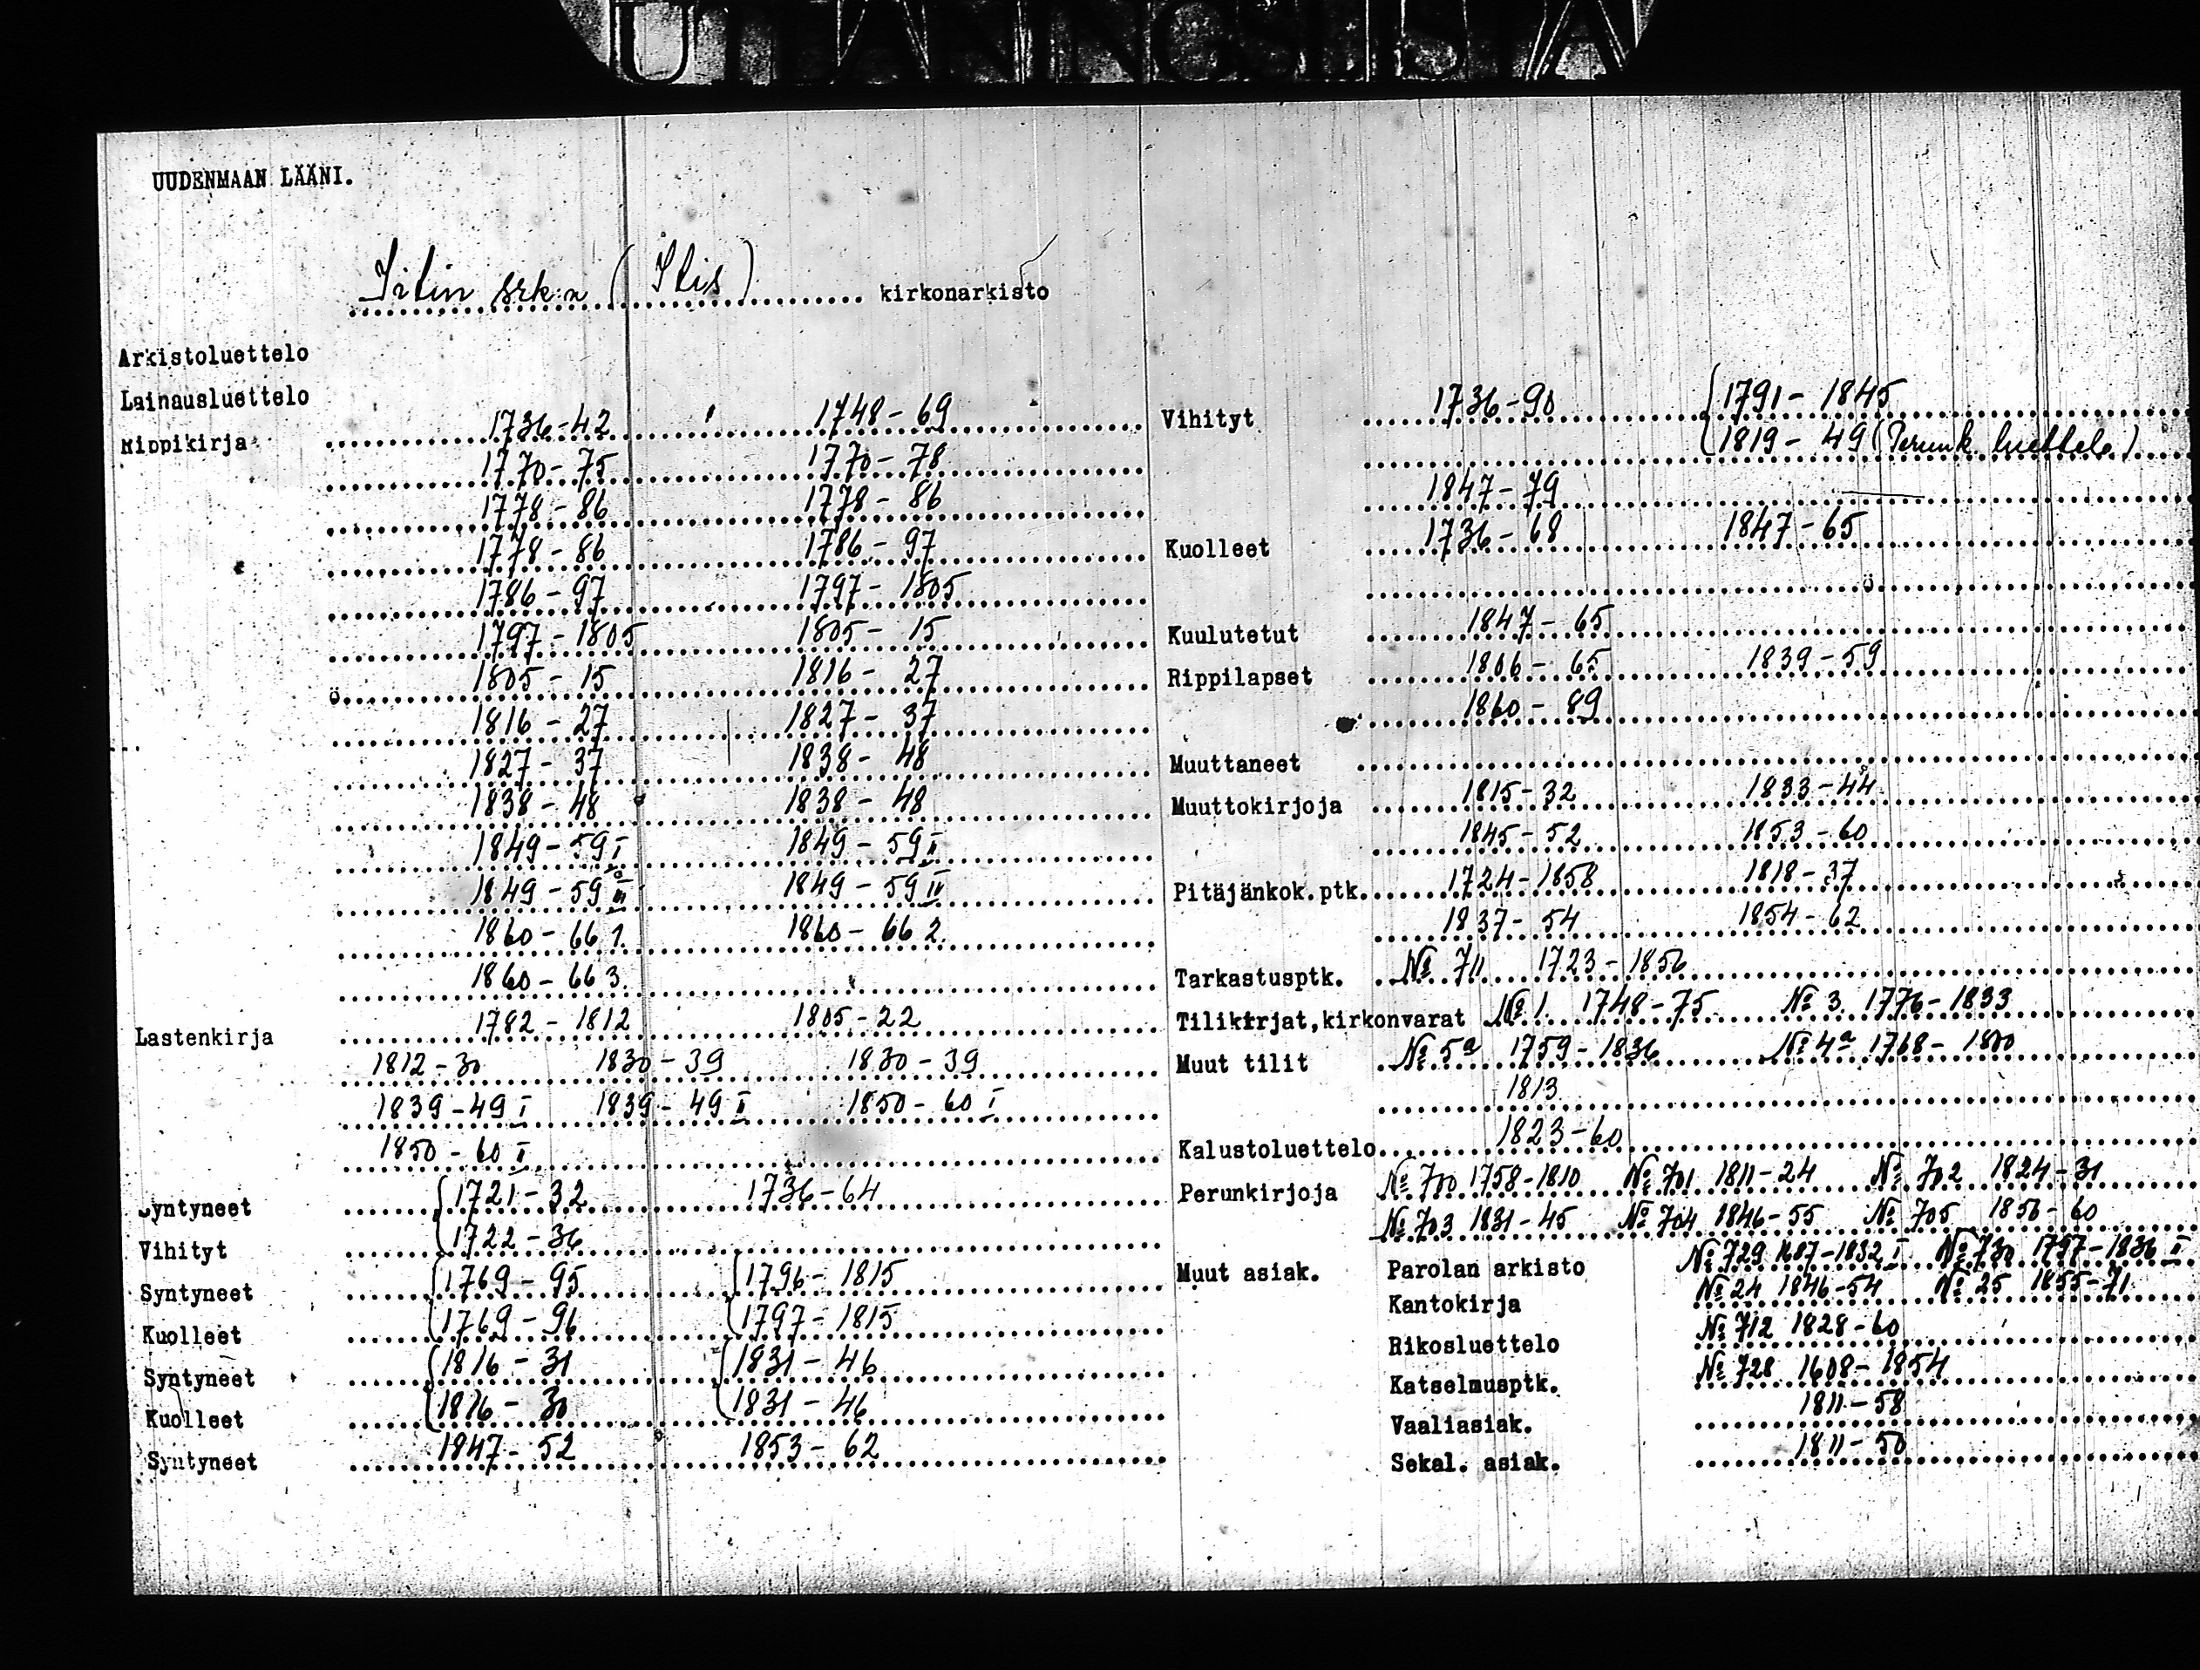 UTLÅNINGSLISTA
UUDENMAAN LÄÄNI.
Iitin srk:n (Itis) kirkonarkisto
Arkistoluettelo
Lainausluettelo
Rippikirja 1736-42 1748-69
1770-75 1770-78
1778-86 1778-86
1778-86 1786-97
1786-97 1797-1805
1797-1805 1805-15
1805-15 1816-27
1816-27 1827-37
1827-37 1838-48
1838-48 1838-48
1849-59 I 1849-59 II
1849-59 III 1849-59 II
1860-66 1. 1860-66 2.
1860-66 3.
Lastenkirja 1782-1812 1805-22
1812-30 1830-39 1830-39
1839-49 I 1839-49 II 1850-60 I
1850-60 II
Syntyneet 1721-32 1736-64
Vihityt 1722-36
Syntyneet 1769-95 1796-1815
Kuolleet 1769-96 1797-1815
Syntyneet 1816-31 1831-46
Kuolleet 1816-30 1831-46
Syntyneet 1847-52 1853-62
Vihityt 1736-90 1791-1845
1819-49 (Perunk. luettelo)
1847-79
Kuolleet 1736-68 1847-65
Kuulutetut 1847-65
Rippilapset 1806-65 1839-59
1860-89
Muuttaneet
Muuttokirjoja 1815-32 1833-44
1845-52 1853-60
Pitäjänkok.ptk. 1724-1858 1818-37
1837-54 1854-62
Tarkastusptk. № 711 1723-1856
Tilikirjat,kirkonvarat № 1. 1748-75 № 3. 1776-1833
Muut tilit № 5a 1759-1836 № 4a 1768-1800
1813
Kalustoluettelo 1823-60
Perunkirjoja № 700 1758-1810 № 701 1811-24 № 702 1824-31
№ 703 1831-45 № 704 1846-55 № 705 1856-60
Muut asiak. Parolan arkisto № 729 1687-1832 I № 730 1797-1836 II
Kantokirja № 24 1846-54 № 25 1855-71
Rikosluettelo № 712 1828-60
Katselmusptk. № 728 1608-1854
Vaaliasiak. 1811-58
Sekal. asiak. 1811-50